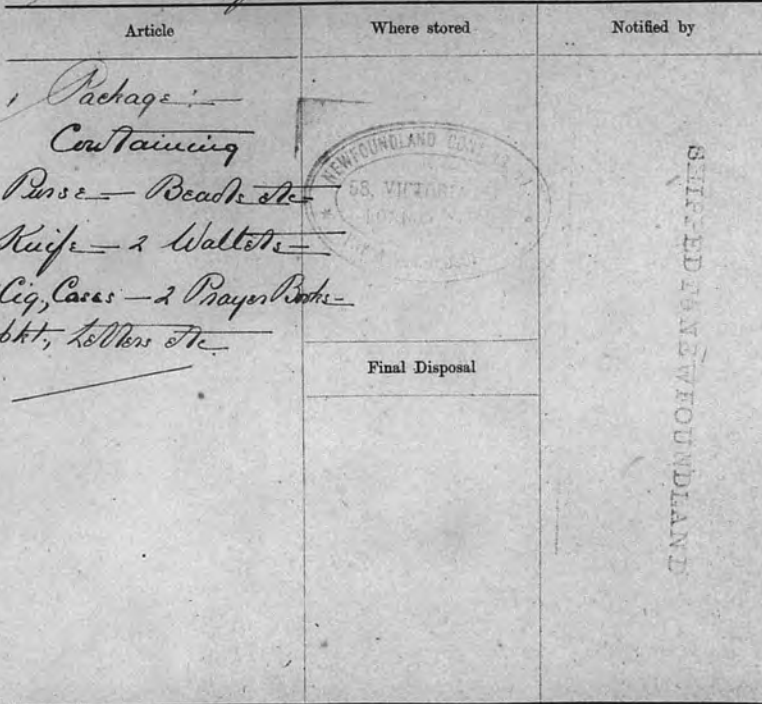 Article
Where stored
Notified by
1 Package :—
Containing
Purse — Beads etc
Knife — 2 Wallets —
Cig, Cases — 2 Prayer Books —
pkt, Letters etc
NEWFOUNDLAND
58, VICTORIA
Final Disposal
SHIPPED TO NEWFOUNDLAND